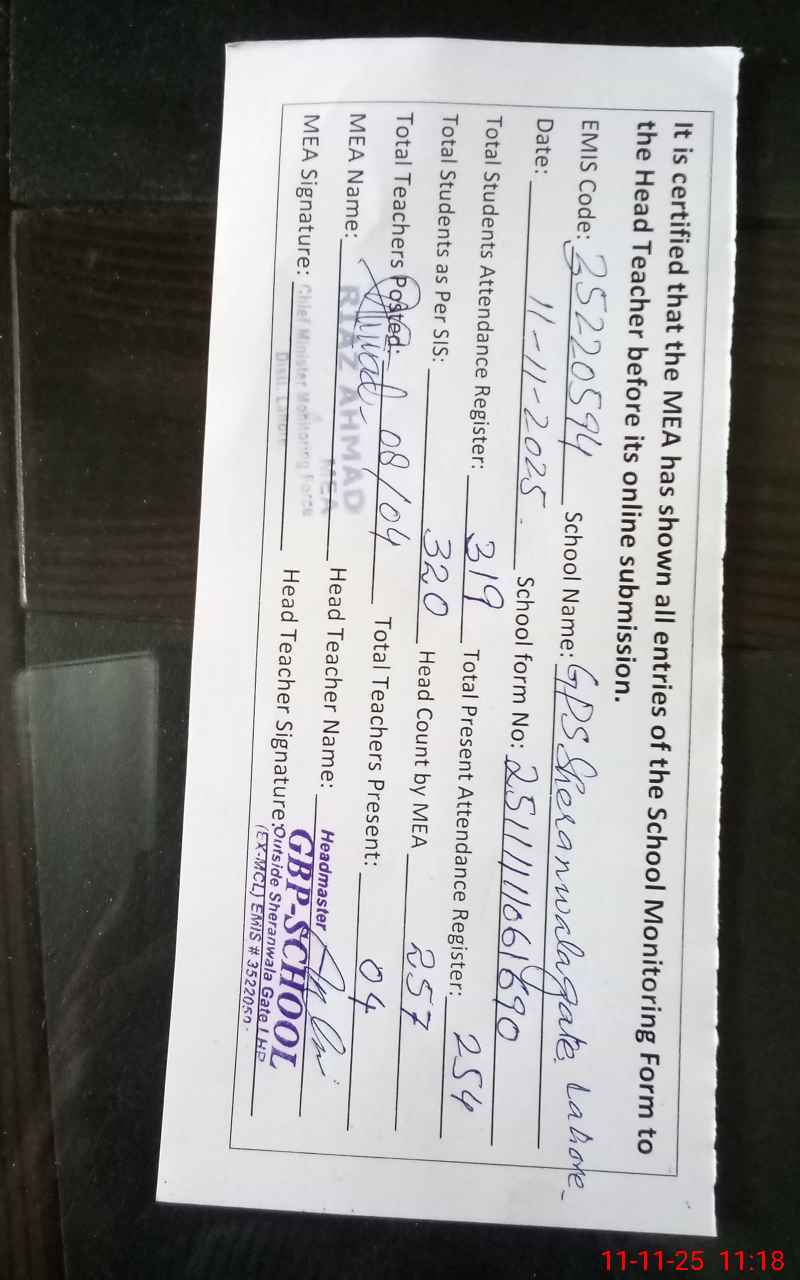 It is certified that the MEA has shown all entries of the School Monitoring Form to
the Head Teacher before its online submission.
EMIS Code: 35220594 School Name: GPS Sheranwalagate, Lahore-
Date: 11-11-2025. School form No:
Total Students Attendance Register: 319 Total Present Attendance Register: 254
Total Students as Per SIS: 320 Head Count by MEA 257
Total Teachers Posted: 08/04 Total Teachers Present: 04
MEA Name: RIAZ AHMAD Head Teacher Name:
MEA
MEA Signature: Chief Minister Monitoring Force Head Teacher Signature:
Distt. Lahore
Headmaster
GBP-SCHOOL
Outside Sheranwala Gate LHR
(EX-MCL) EMIS #
11-11-25 11:18